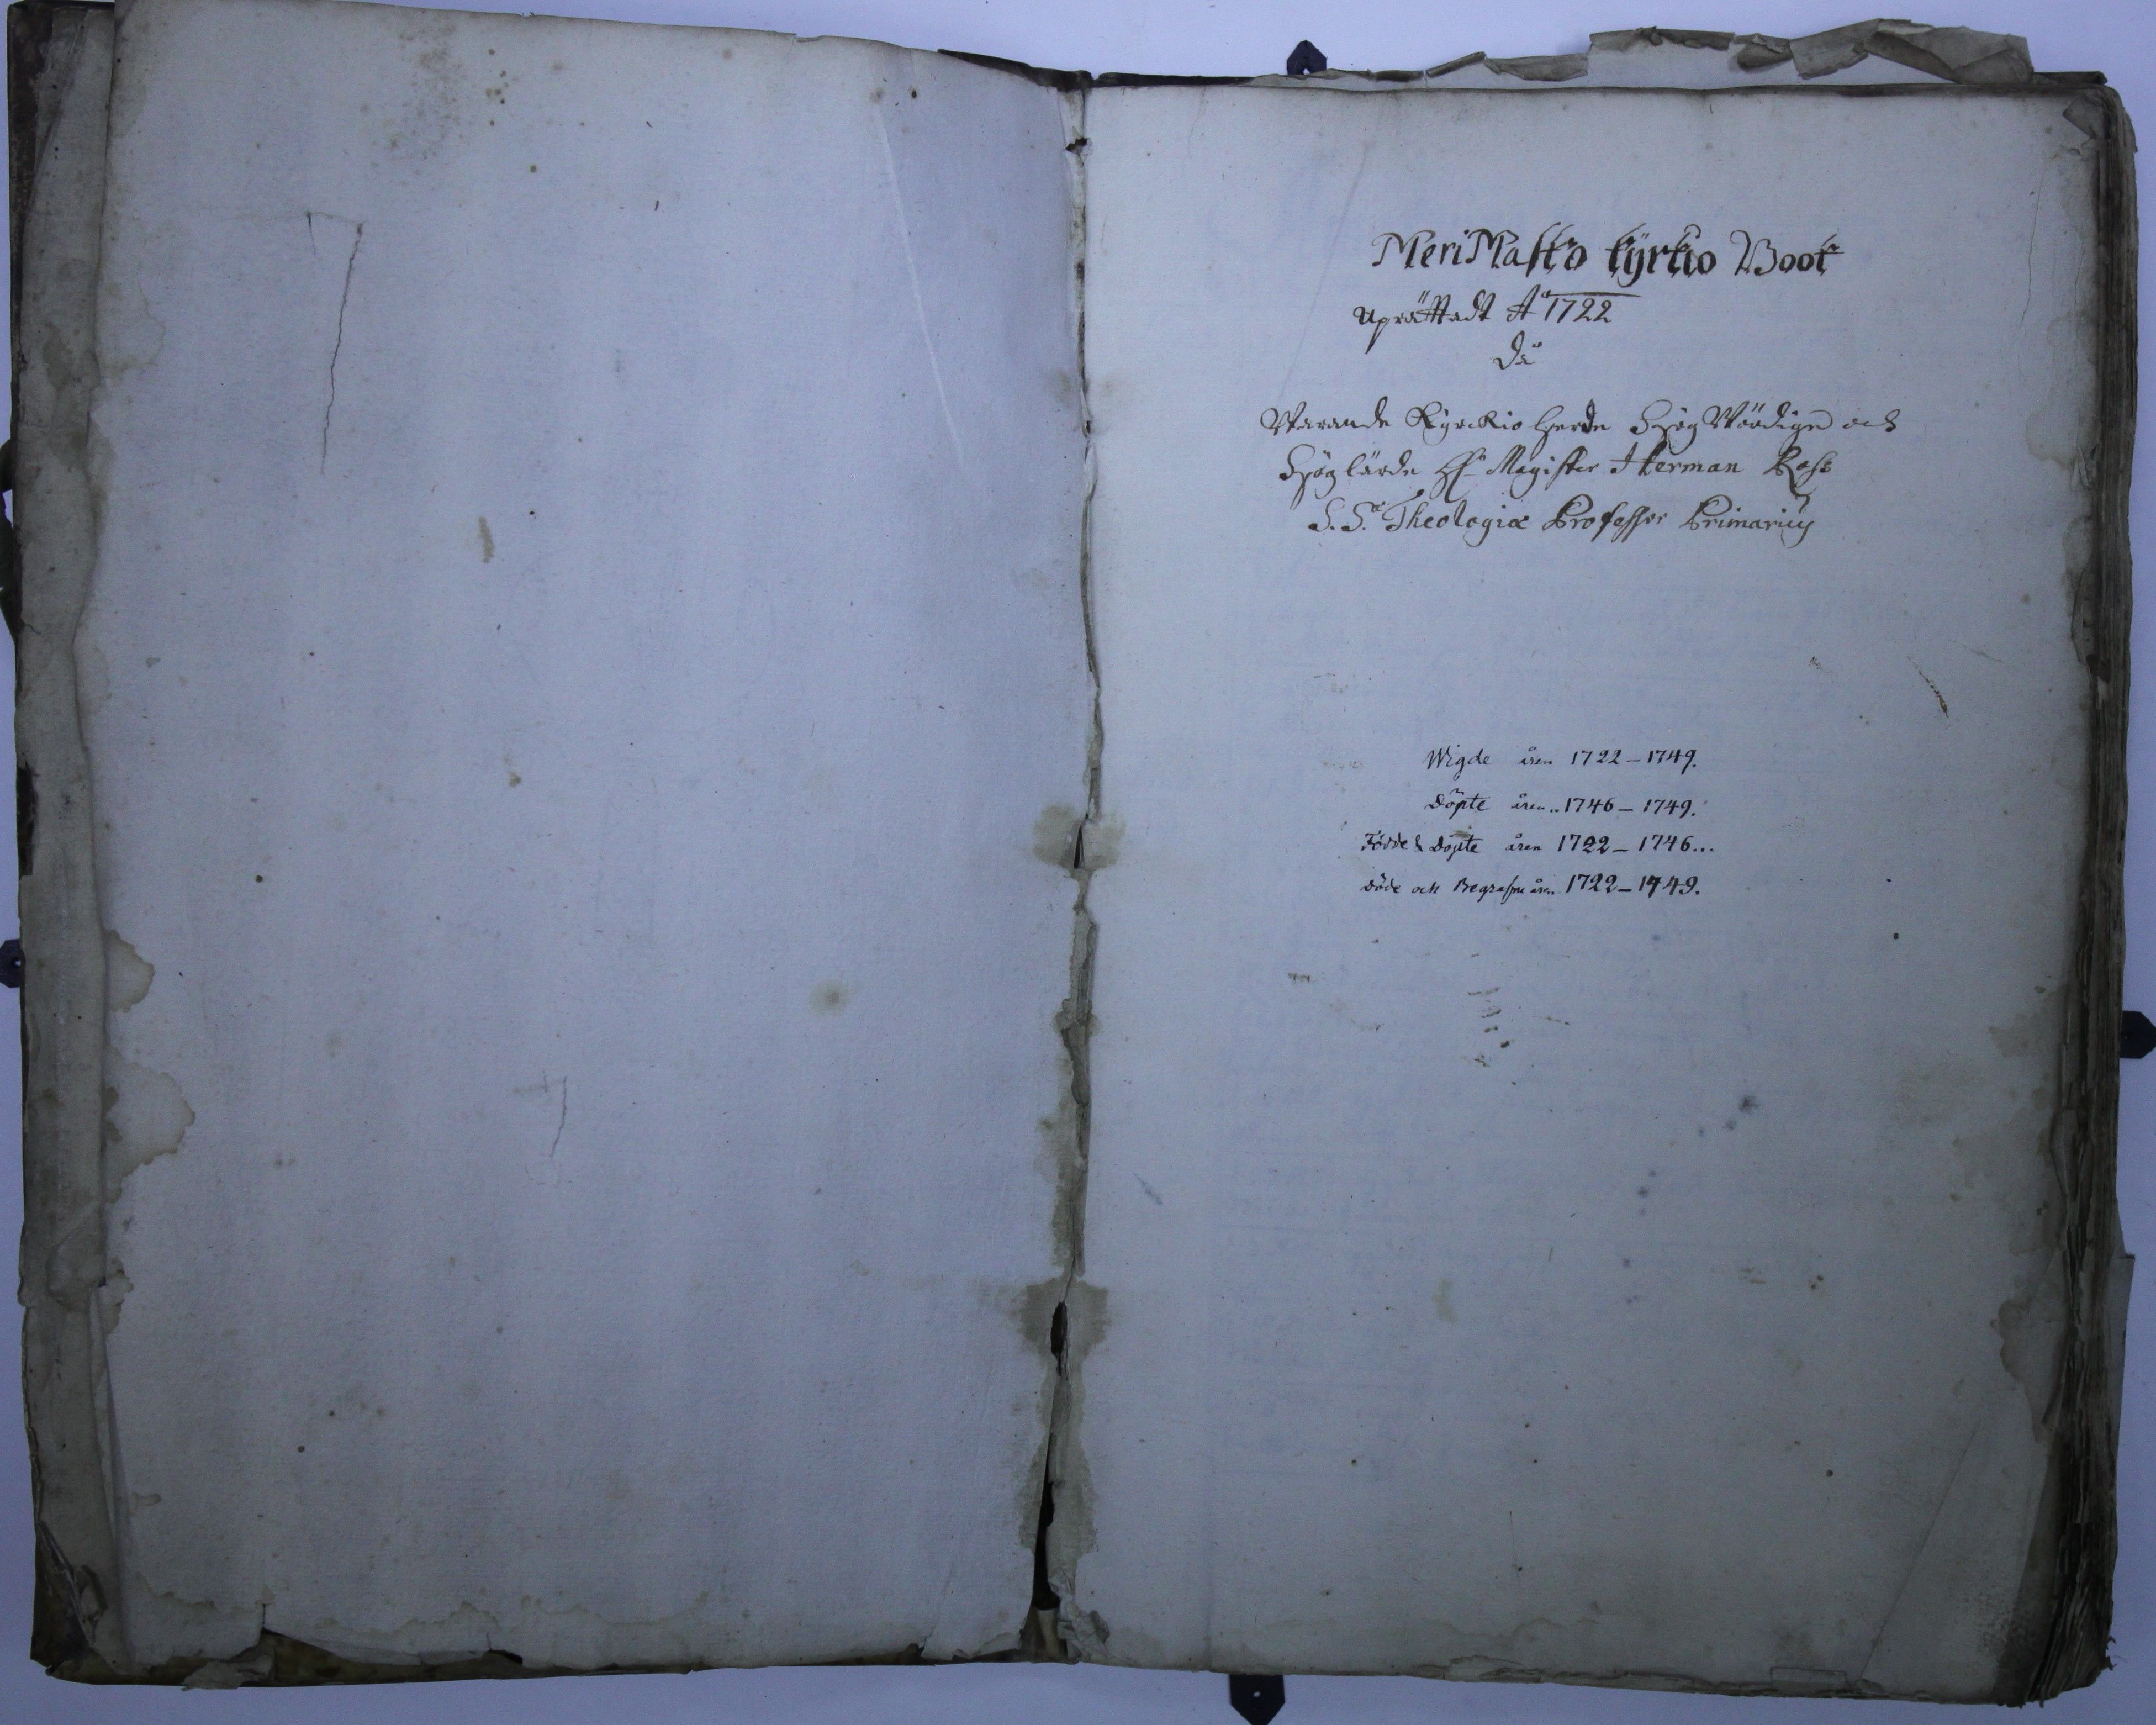 MeriMasko kyrkio Book
uprättadt Aº 1722
då
Warande Kyrckio herde HögWördige och
Höglärde Hr Magister Herman Ross
S. S.æ Theologiæ Professor Primarius
Wigde åren 1722 – 1749.
Döpte åren .. 1746 – 1749.
Födde & Döpte åren 1722 – 1746...
Döde och Begrafne åren. 1722 – 1749.